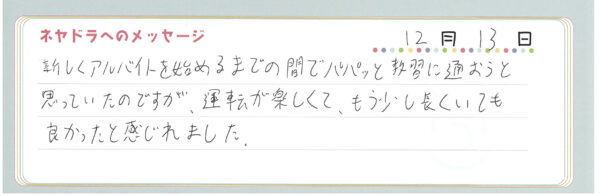 ネヤドラへのメッセージ
12月 13日
新しくアルバイトを始めるまでの間でパパッと教習に通おうと
思っていたのですが、運転が楽しくて、もう少し長くいても
良かったと感じれました.